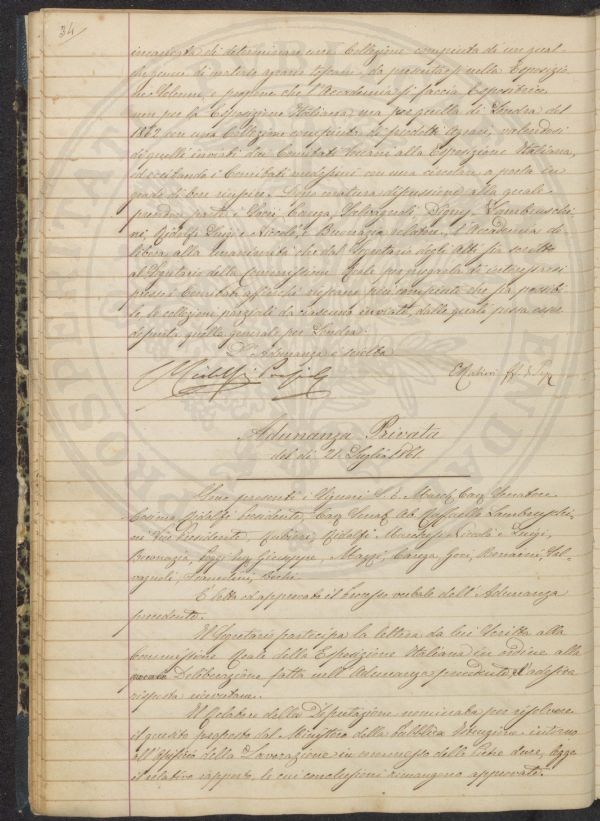 34
incaricata di determinare una Collezione compiuta di un qual-
che genere di materie agrarie toscane, da presentarsi nella Esposizio
ne Solenne, e propone che l'Accademia si faccia Espositrice
non per la Esposizione Italiana, ma per quella di Londra del
1862 con una Collezione compiuta di prodotti agrari, valendosi
di quelli inviati dai Comitati toscani alla Esposizione Italiana,
ed eccitando i Comitati medesimi con una circolare a porla in
grado di ben riuscire. Dopo matura discussione alla quale
prendon parte i Socj Caruso, Salvagnoli, Digny, Lambruschi
ni, Ridolfi Luigi e Niccolò, e Buonazia relatore, l'Accademia de
libera alla unanimità che dal Segretario degli Atti sia scritto
al Segretario della Commissione Reale per pregarla di interessarsi
presso i Comitati affinchè riescano più compiute che sia possibi
le, le collezioni parziali da ciascuno inviate, dalle quali possa essere
desunta quella generale per Londra.
L'Adunanza è sciolta
E Rubieri ff. di Seg.
Adunanza Privata
del dì 21. Luglio 1861.
Sono presenti i Signori S. E. March. Cav. Senatore
Cosimo Ridolfi Presidente, Cav. Senat. Ab. Raffaello Lambruschi-
ni Vice Presidente, Rubieri, Ridolfi Marchesi Niccolò e Luigi,
Buonazia, Poggi Giuseppe, Mazzi, Gori, Bonaini, Sal-
vagnoli,
È letto ed approvato il Processo verbale dell'Adunanza
precedente.
Il Segretario partecipa la lettera da lui scritta alla
Commissione Reale della Esposizione Italiana in ordine alla
Deliberazione fatta nell'Adunanza precedente, e l'adesiva
risposta ricevutane.
Il Relatore della Deputazione nominata per risolvere
il quesito proposto dal Ministero della Pubblica Istruzione intorno
all'Opificio della Lavorazione in commesso delle Pietre dure, legge
il relativo rapporto, le cui conclusioni rimangono approvate.